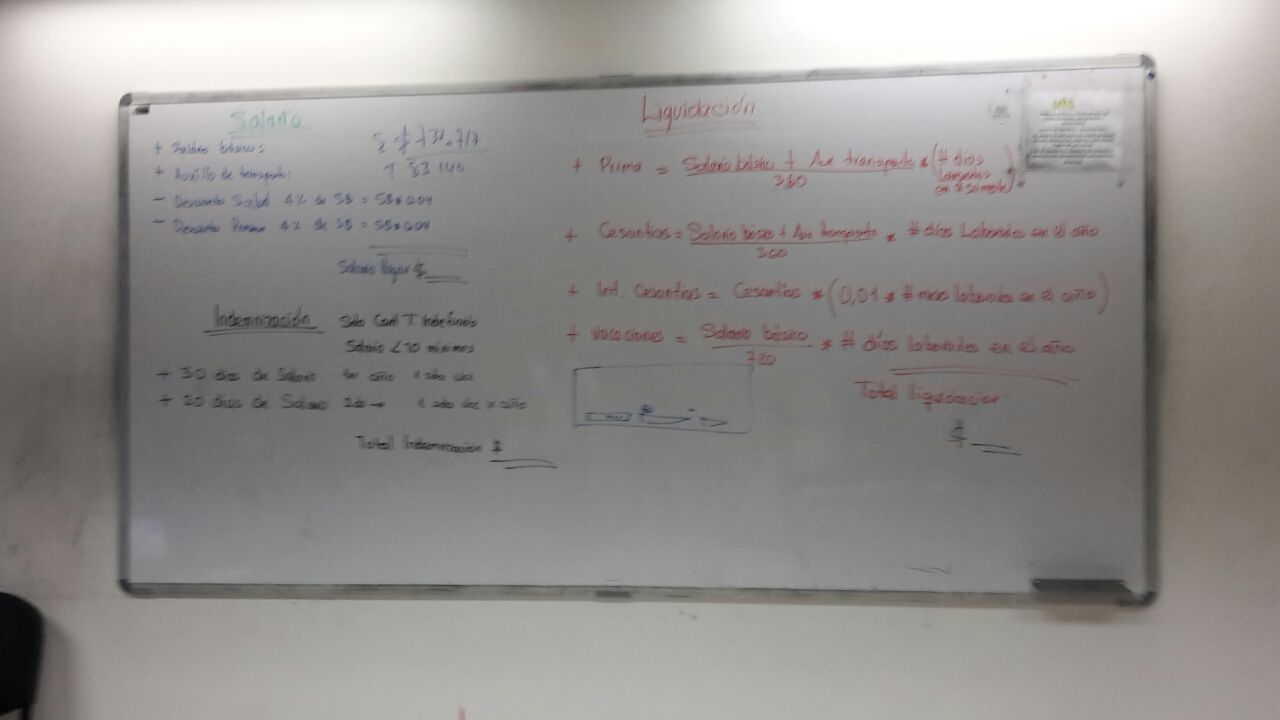 Salario
+ Salario básico: $ 737.717
+ Auxilio de transporte: 83 140
- Descuento Salud 4% de SB = SB*0.04
- Descuento Pension 4% de SB = SB*0.04
Salario Pagar $
Indemnización Solo Cont T Indefinido
Salario < 10 minimos
+ 30 dias de Salario 1er año
+ 20 dias de Salario 2do → x año
Total Indemnización $
Liquidación
+ Prima = Salario básico + Aux transporte * (# dias
360
en el semestre)
+ Cesantias = Salario básico + Aux transporte * # dias Laborados en el año
360
+ Int. Cesantias = Cesantias * (0,01 * # meses laborados en el año)
+ Vacaciones = Salario básico * # dias laborados en el año
720
Total liquidacion
$